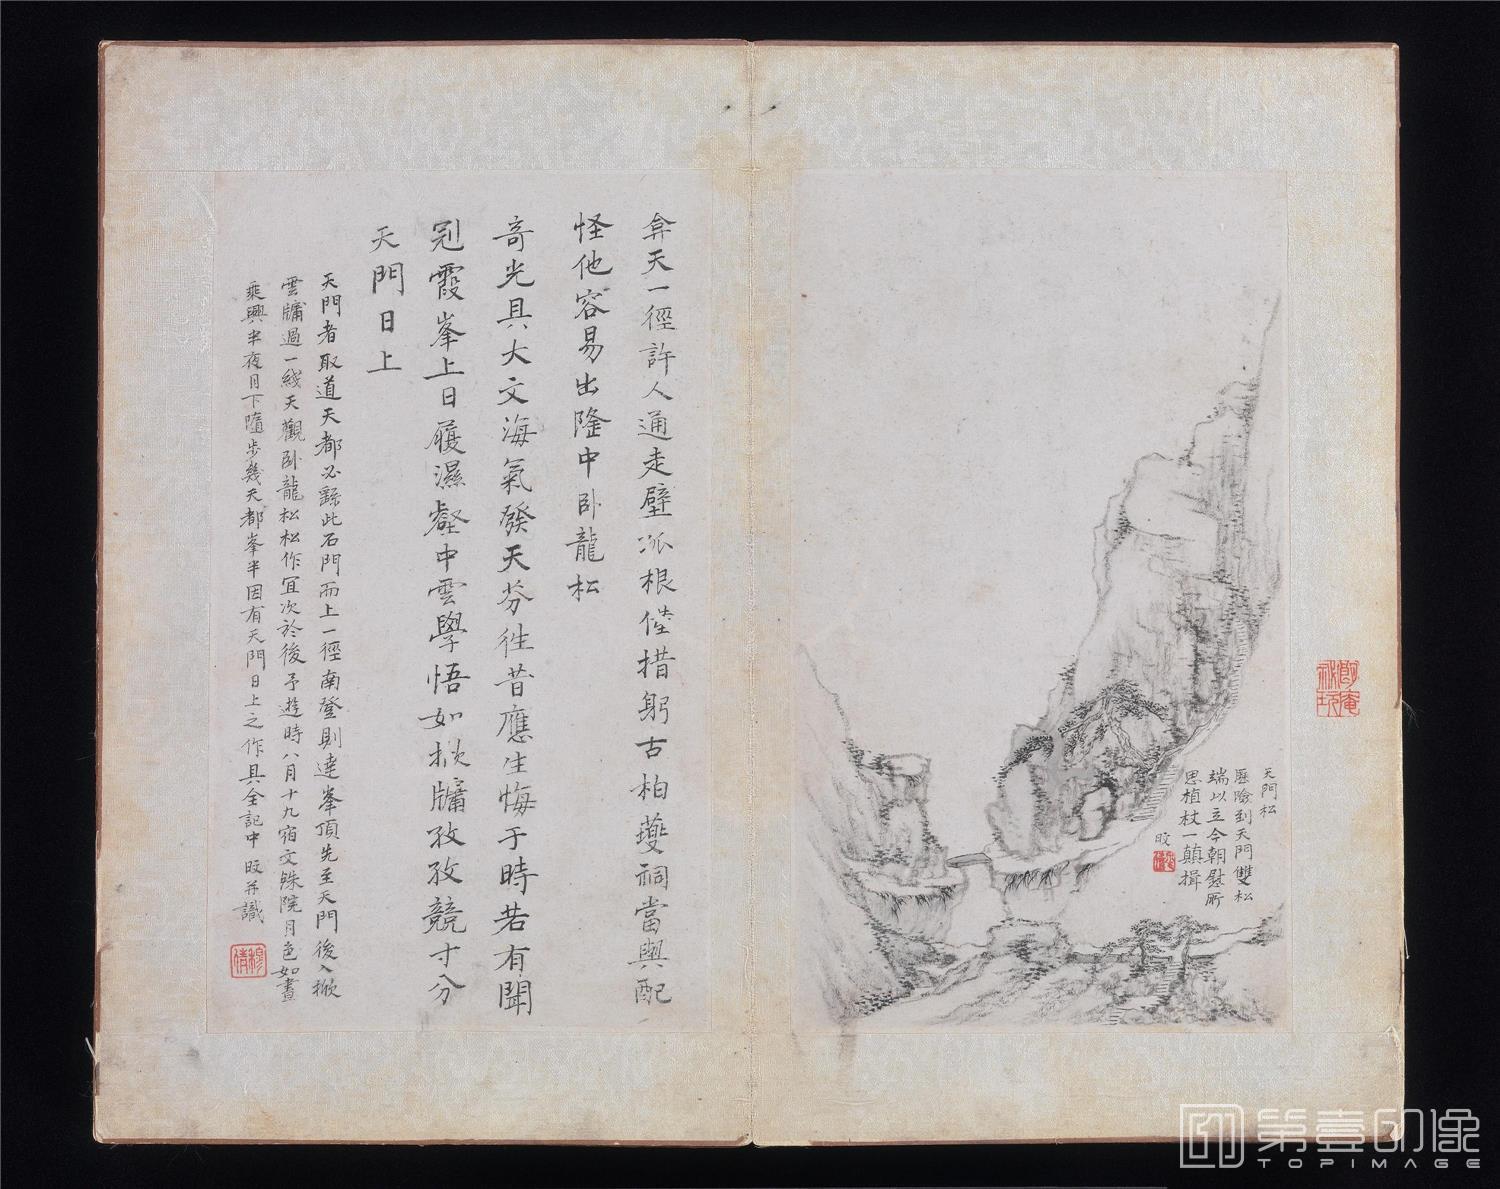 天門松
歷險到天門雙松
端以立今朝慰所
思植杖一顛揖
旼
弇天一徑許人通走壁孤根倚措躬古柏夔祠當與配
怪他容易出隆中卧龍松
奇光具大文海氣發天芬往昔應生悔于時若有聞
冠霞峯上日履濕壑中雲學悟如掀牖孜孜競寸分
天門日上
天門者取道天都必繇此石門而上一徑南登則達峯頂先至天門後入掀
雲牖過一綫天觀卧龍松松作宜次於後予遊時八月十九宿文殊院月色如晝
乘興半夜月下隨步幾天都峯半因有天門日上之作具全記中旼并識
第壹印像
TOPIMAGE